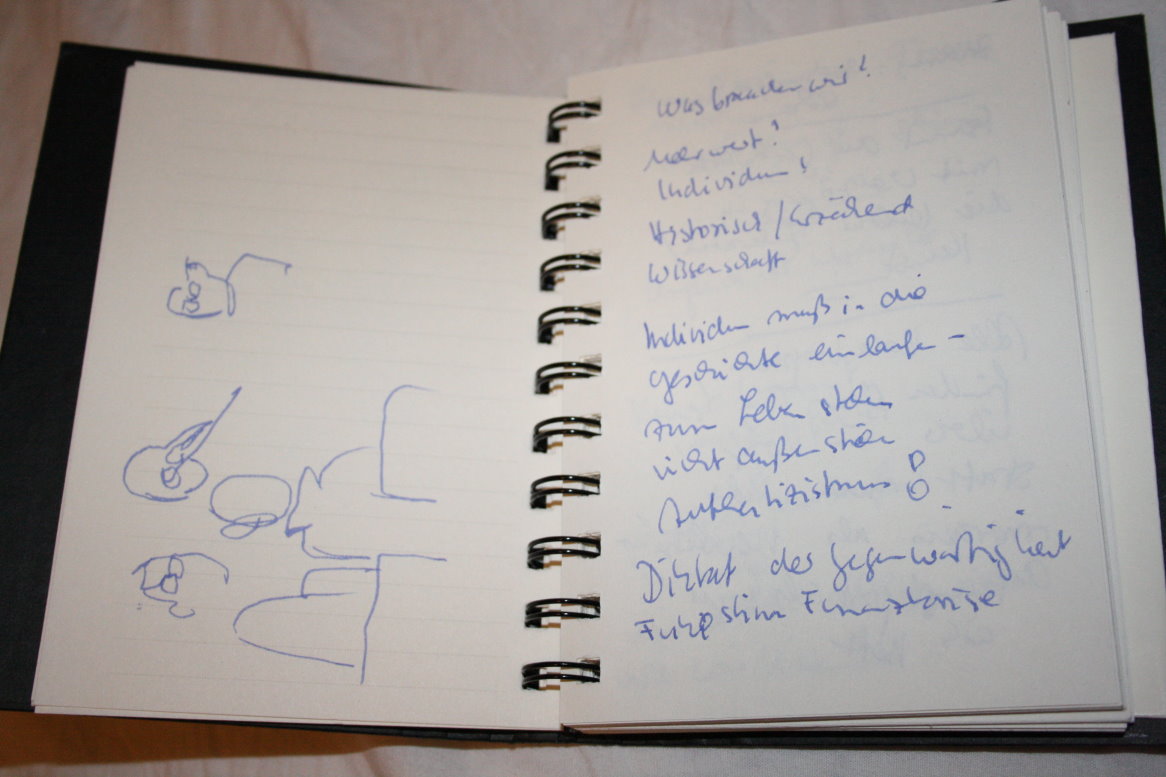 Was brauchen wir!
Mehrwert!
Individuen!
Historisch / 
Wissenschaft
Individuen muß in die
Geschichte einlaufen -
zum Leben stehen
nicht außen stehen
Authentizismus!
Diktat der Gegenwärtigkeit
Finanzkrise